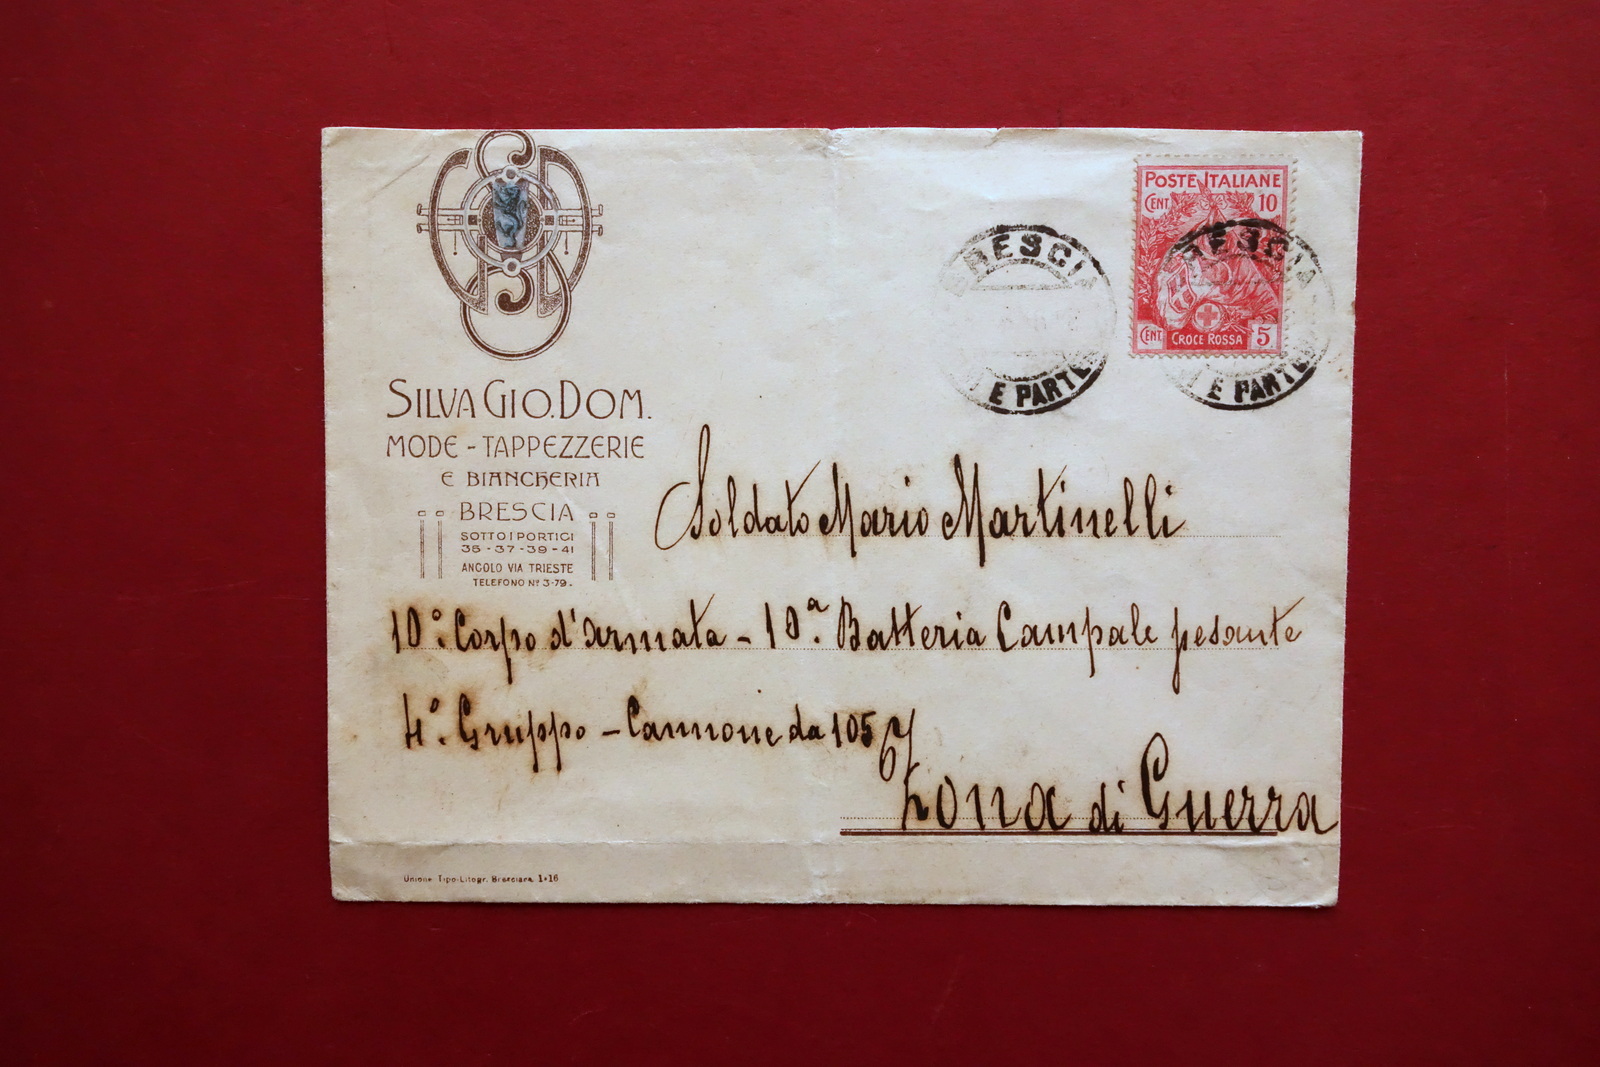 SILVA GIO. DOM.
MODE - TAPPEZZERIE
E BIANCHERIA
BRESCIA
SOTTO I PORTICI
35 - 37 - 39 - 41
ANGOLO VIA TRIESTE
TELEFONO Nº 3-79.
BRESCIA
E PARTENZE
POSTE ITALIANE
CENT 10
CENT 5
CROCE ROSSA
BRESCIA
E PARTENZE
Soldato Mario Martinelli
10º. Corpo d'armata - 10ª. Batteria Campale pesante
4º. Gruppo - Cannone da 105
Zona di Guerra
Unione Tipo-Litogr. Bresciana 1-16